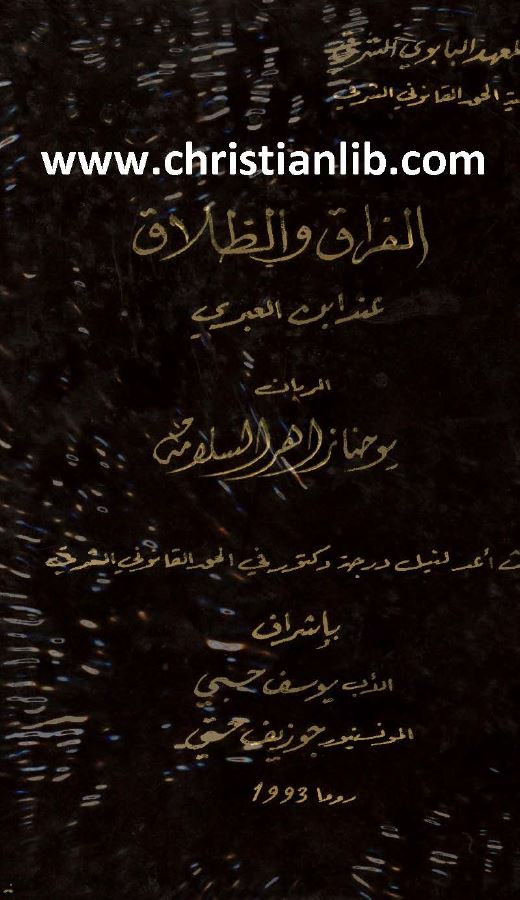 المعهد البابوي الشرقي
الحق القانوني الشرقي
www.christianlib.com
الفراق والطلاق
عند ابن العبري
الربان
يوحنا زاهر السلامة
أعد لنيل درجة دكتور في الحق القانوني الشرقي
بإشراف
الأب يوسف حبي
المونسنيور جوزيف
روما 1993